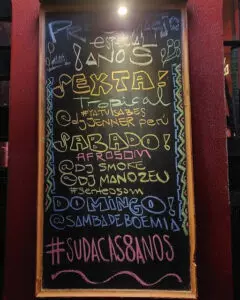 especial
8 ANOS
SEXTA!
Tropical
#TATUSABES
@djJENNER Perú
SABADO!
AFROSOM
@DJ SMOKE
@DJ MANOZEU
#Senteosom
DOMINGO!
@SAMBADEBOEMIA
#SUDACAS8ANOS